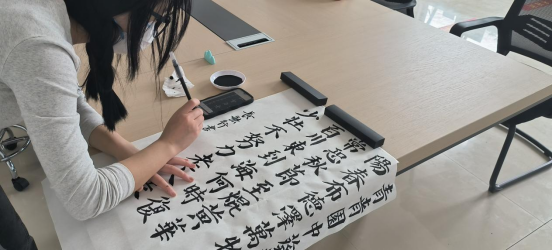 青青園中
陽春布德澤萬物
常恐秋節至焜黃華
百川東到海何時復
少壯不努力老